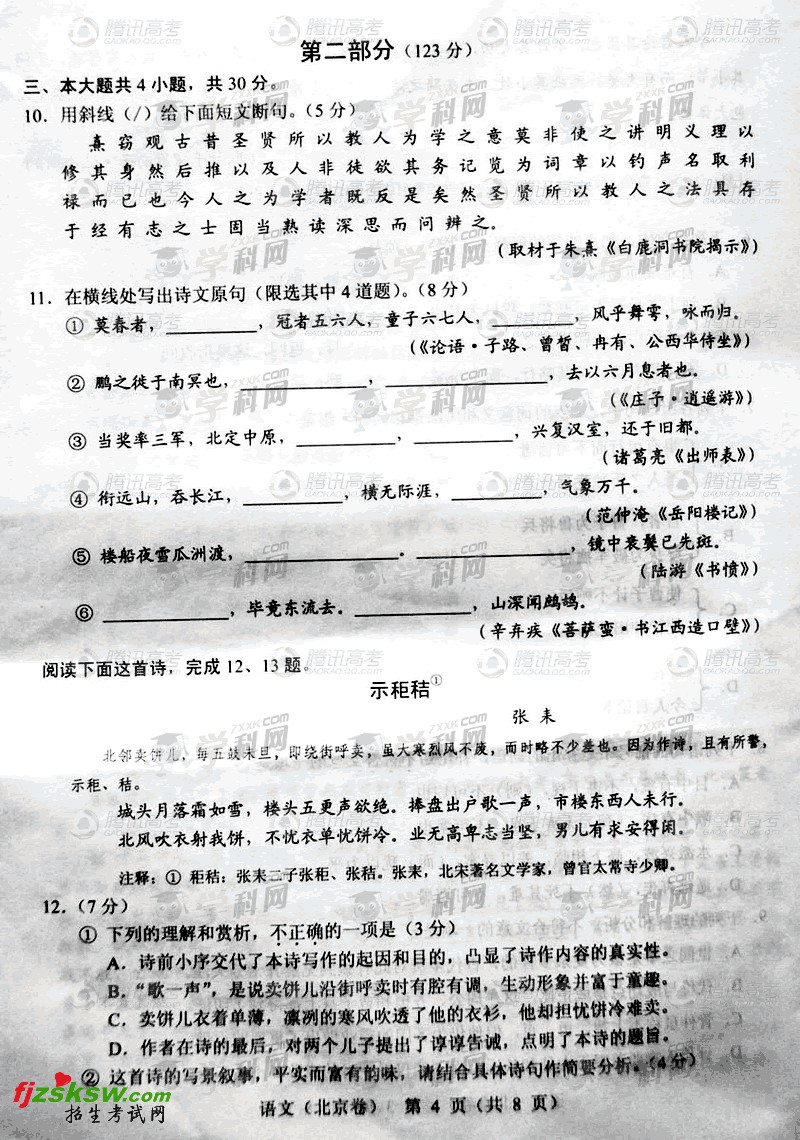 第二部分（123分）
三、本大题共4小题，共30分。
10．用斜线（/）给下面短文断句。（5分）
熹窃观古昔圣贤所以教人为学之意莫非使之讲明义理以
修其身然后推以及人非徒欲其务记览为词章以钓声名取利
禄而已也今人之为学者既反是矣然圣贤所以教人之法具存
于经有志之士固当熟读深思而问辨之。
（取材于朱熹《白鹿洞书院揭示》）
11．在横线处写出诗文原句（限选其中4道题）。（8分）
① 莫春者，__________，冠者五六人，童子六七人，__________，风乎舞雩，咏而归。
（《论语·子路、曾皙、冉有、公西华侍坐》）
② 鹏之徙于南冥也，__________，__________，去以六月息者也。
（《庄子·逍遥游》）
③ 当奖率三军，北定中原，__________，__________，兴复汉室，还于旧都。
（诸葛亮《出师表》）
④ 衔远山，吞长江，__________，横无际涯，__________，气象万千。
（范仲淹《岳阳楼记》）
⑤ 楼船夜雪瓜洲渡，__________。__________，镜中衰鬓已先斑。
（陆游《书愤》）
⑥ __________，毕竟东流去。__________，山深闻鹧鸪。
（辛弃疾《菩萨蛮·书江西造口壁》）
阅读下面这首诗，完成12、13题。
示秬秸①
张耒
北邻卖饼儿，每五鼓未旦，即绕街呼卖，虽大寒烈风不废，而时略不少差也。因为作诗，且有所警，
示秬、秸。
城头月落霜如雪，楼头五更声欲绝。捧盘出户歌一声，市楼东西人未行。
北风吹衣射我饼，不忧衣单忧饼冷。业无高卑志当坚，男儿有求安得闲。
注释：① 秬秸：张耒二子张秬、张秸。张耒，北宋著名文学家，曾官太常寺少卿。
12．（7分）
① 下列的理解和赏析，不正确的一项是（3分）
A．诗前小序交代了本诗写作的起因和目的，凸显了诗作内容的真实性。
B．“歌一声”，是说卖饼儿沿街呼卖时有腔有调，生动形象并富于童趣。
C．卖饼儿衣着单薄，凛冽的寒风吹透了他的衣衫，他却担忧饼冷难卖。
D．作者在诗的最后，对两个儿子提出了谆谆告诫，点明了本诗的题旨。
② 这首诗的写景叙事，平实而富有韵味，请结合具体诗句作简要分析。（4分）
语文（北京卷） 第 4 页（共 8 页）
fjzsksw.com
招生考试网
腾讯高考
GAOKAO.QQ.COM
学科网
ZXXK.COM